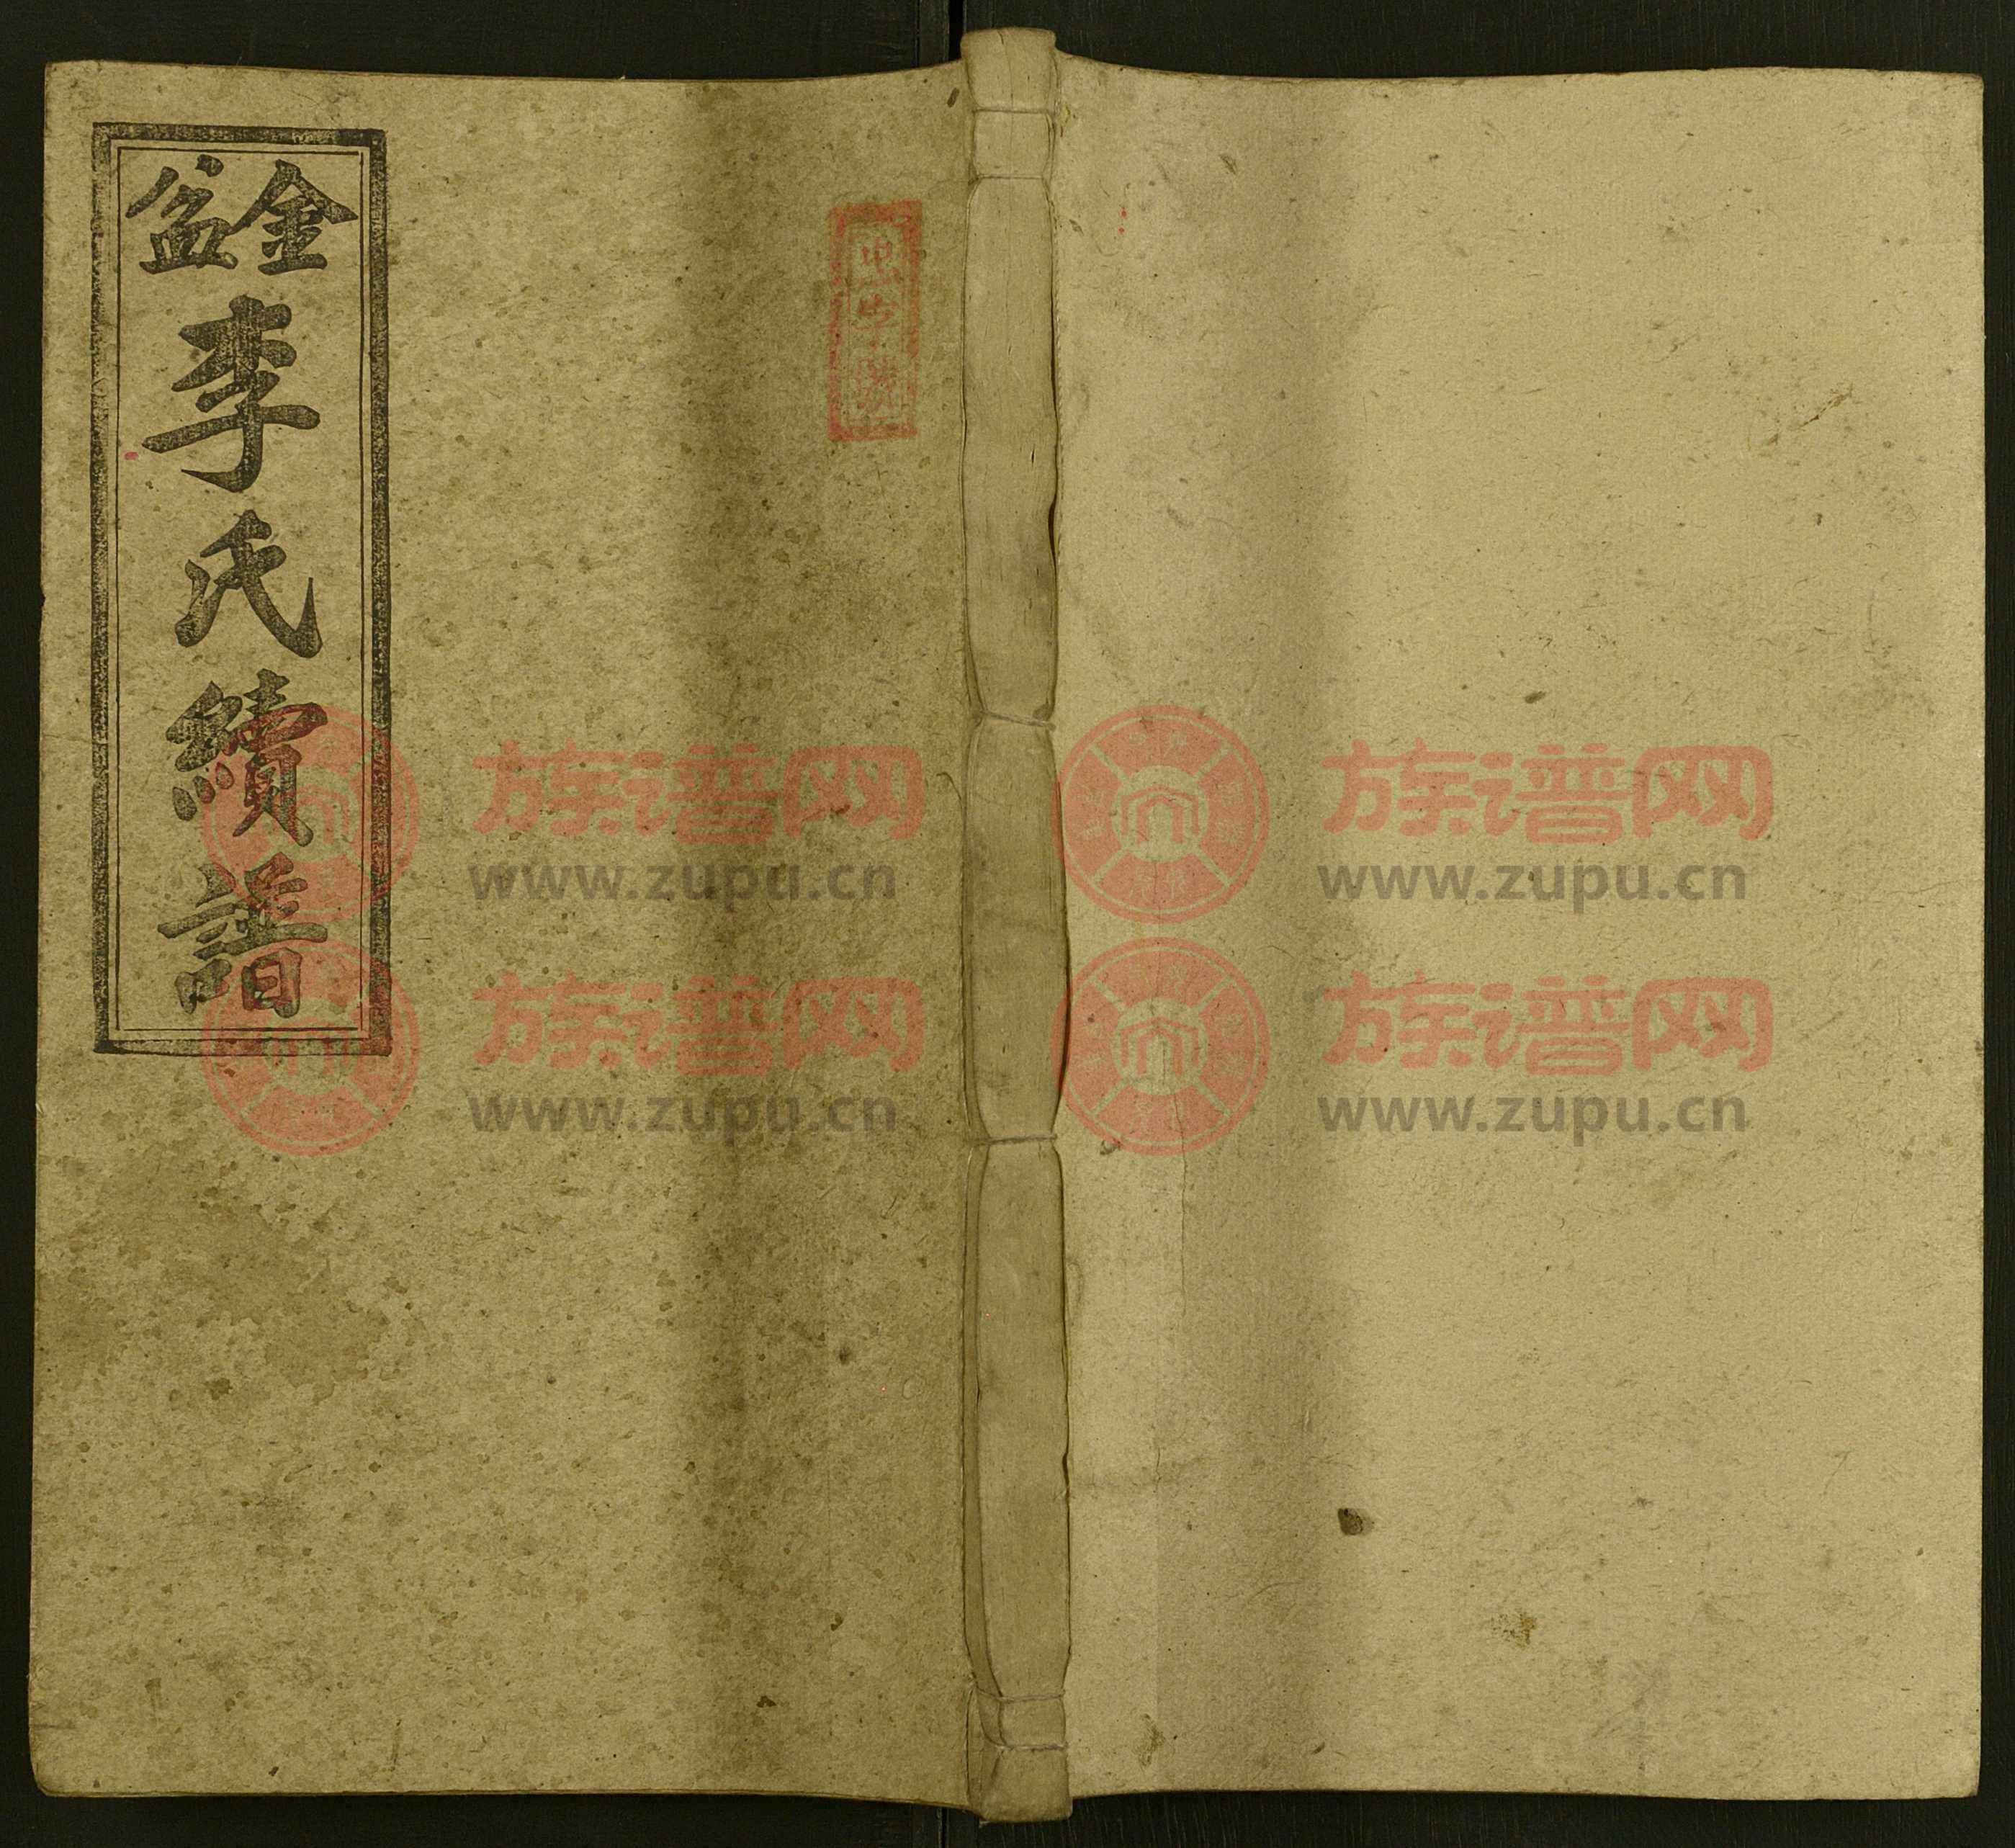 金盆
李氏續譜
忠字號
族谱网
www.zupu.cn
族谱网
www.zupu.cn
族谱网
www.zupu.cn
族谱网
www.zupu.cn